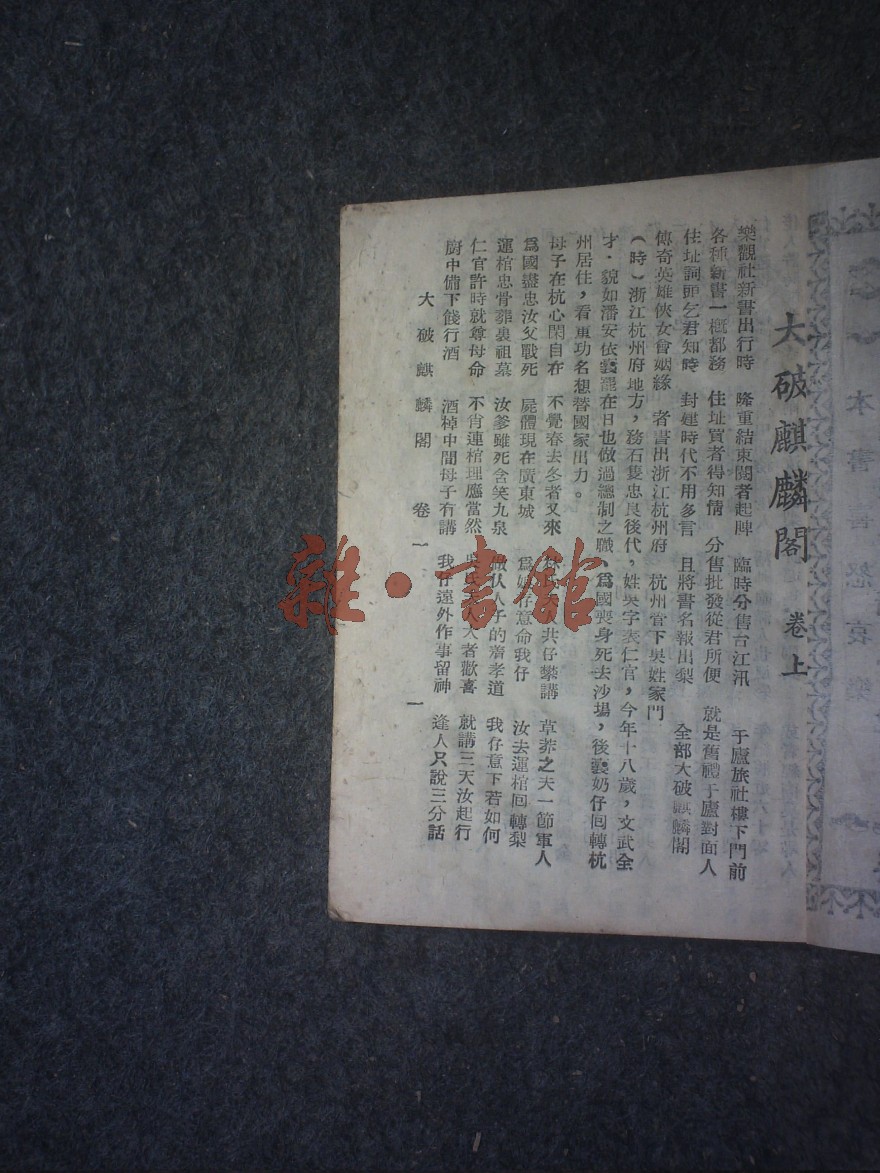 大破麒麟閣 卷上
樂觀社新書出行時 隆重結束閱者起陣 臨時分售台江汛 于廬旅社樓下門前
各種新書一概都務 住址買者得知情 分售批發從君所便 就是舊禮于廬對面人
住址詞臣乞君知時 封建時代不用多言 且將書名報出梨 全部大破麒麟閣
傳奇英雄俠女會姻緣 者書出浙江杭州府 杭州管下吳姓家門
(時)浙江杭州府地方，務石隻忠良後代，姓吳字表仁官，今年十八歲，文武全
才．貌如潘安依爹寵在日也做過總制之職，為國喪身死去沙場，後裴奶仔回轉杭
州居住，看重功名想替國家出力。
母子在杭心閑自在 不覺春去冬者又來 共仔攀講 草莽之夫一節軍人
為國盡忠汝父戰死 屍體現在廣東城 為娘仔意命我仔 汝去運棺回轉梨
運棺忠骨葬裏祖墓 汝爹雖死含笑九泉 做仈人子的齊孝道 我仔意下若如何
仁官許時就尊母命 不肖連棺理應當然 夫人者歡喜 就講三天汝起行
廚中備下餞行酒 酒棹中間母子有講 我仔遠外作事留神 逢人只說三分話
大破麒麟閣 卷一 一
雜·書館
本書喜怒哀樂